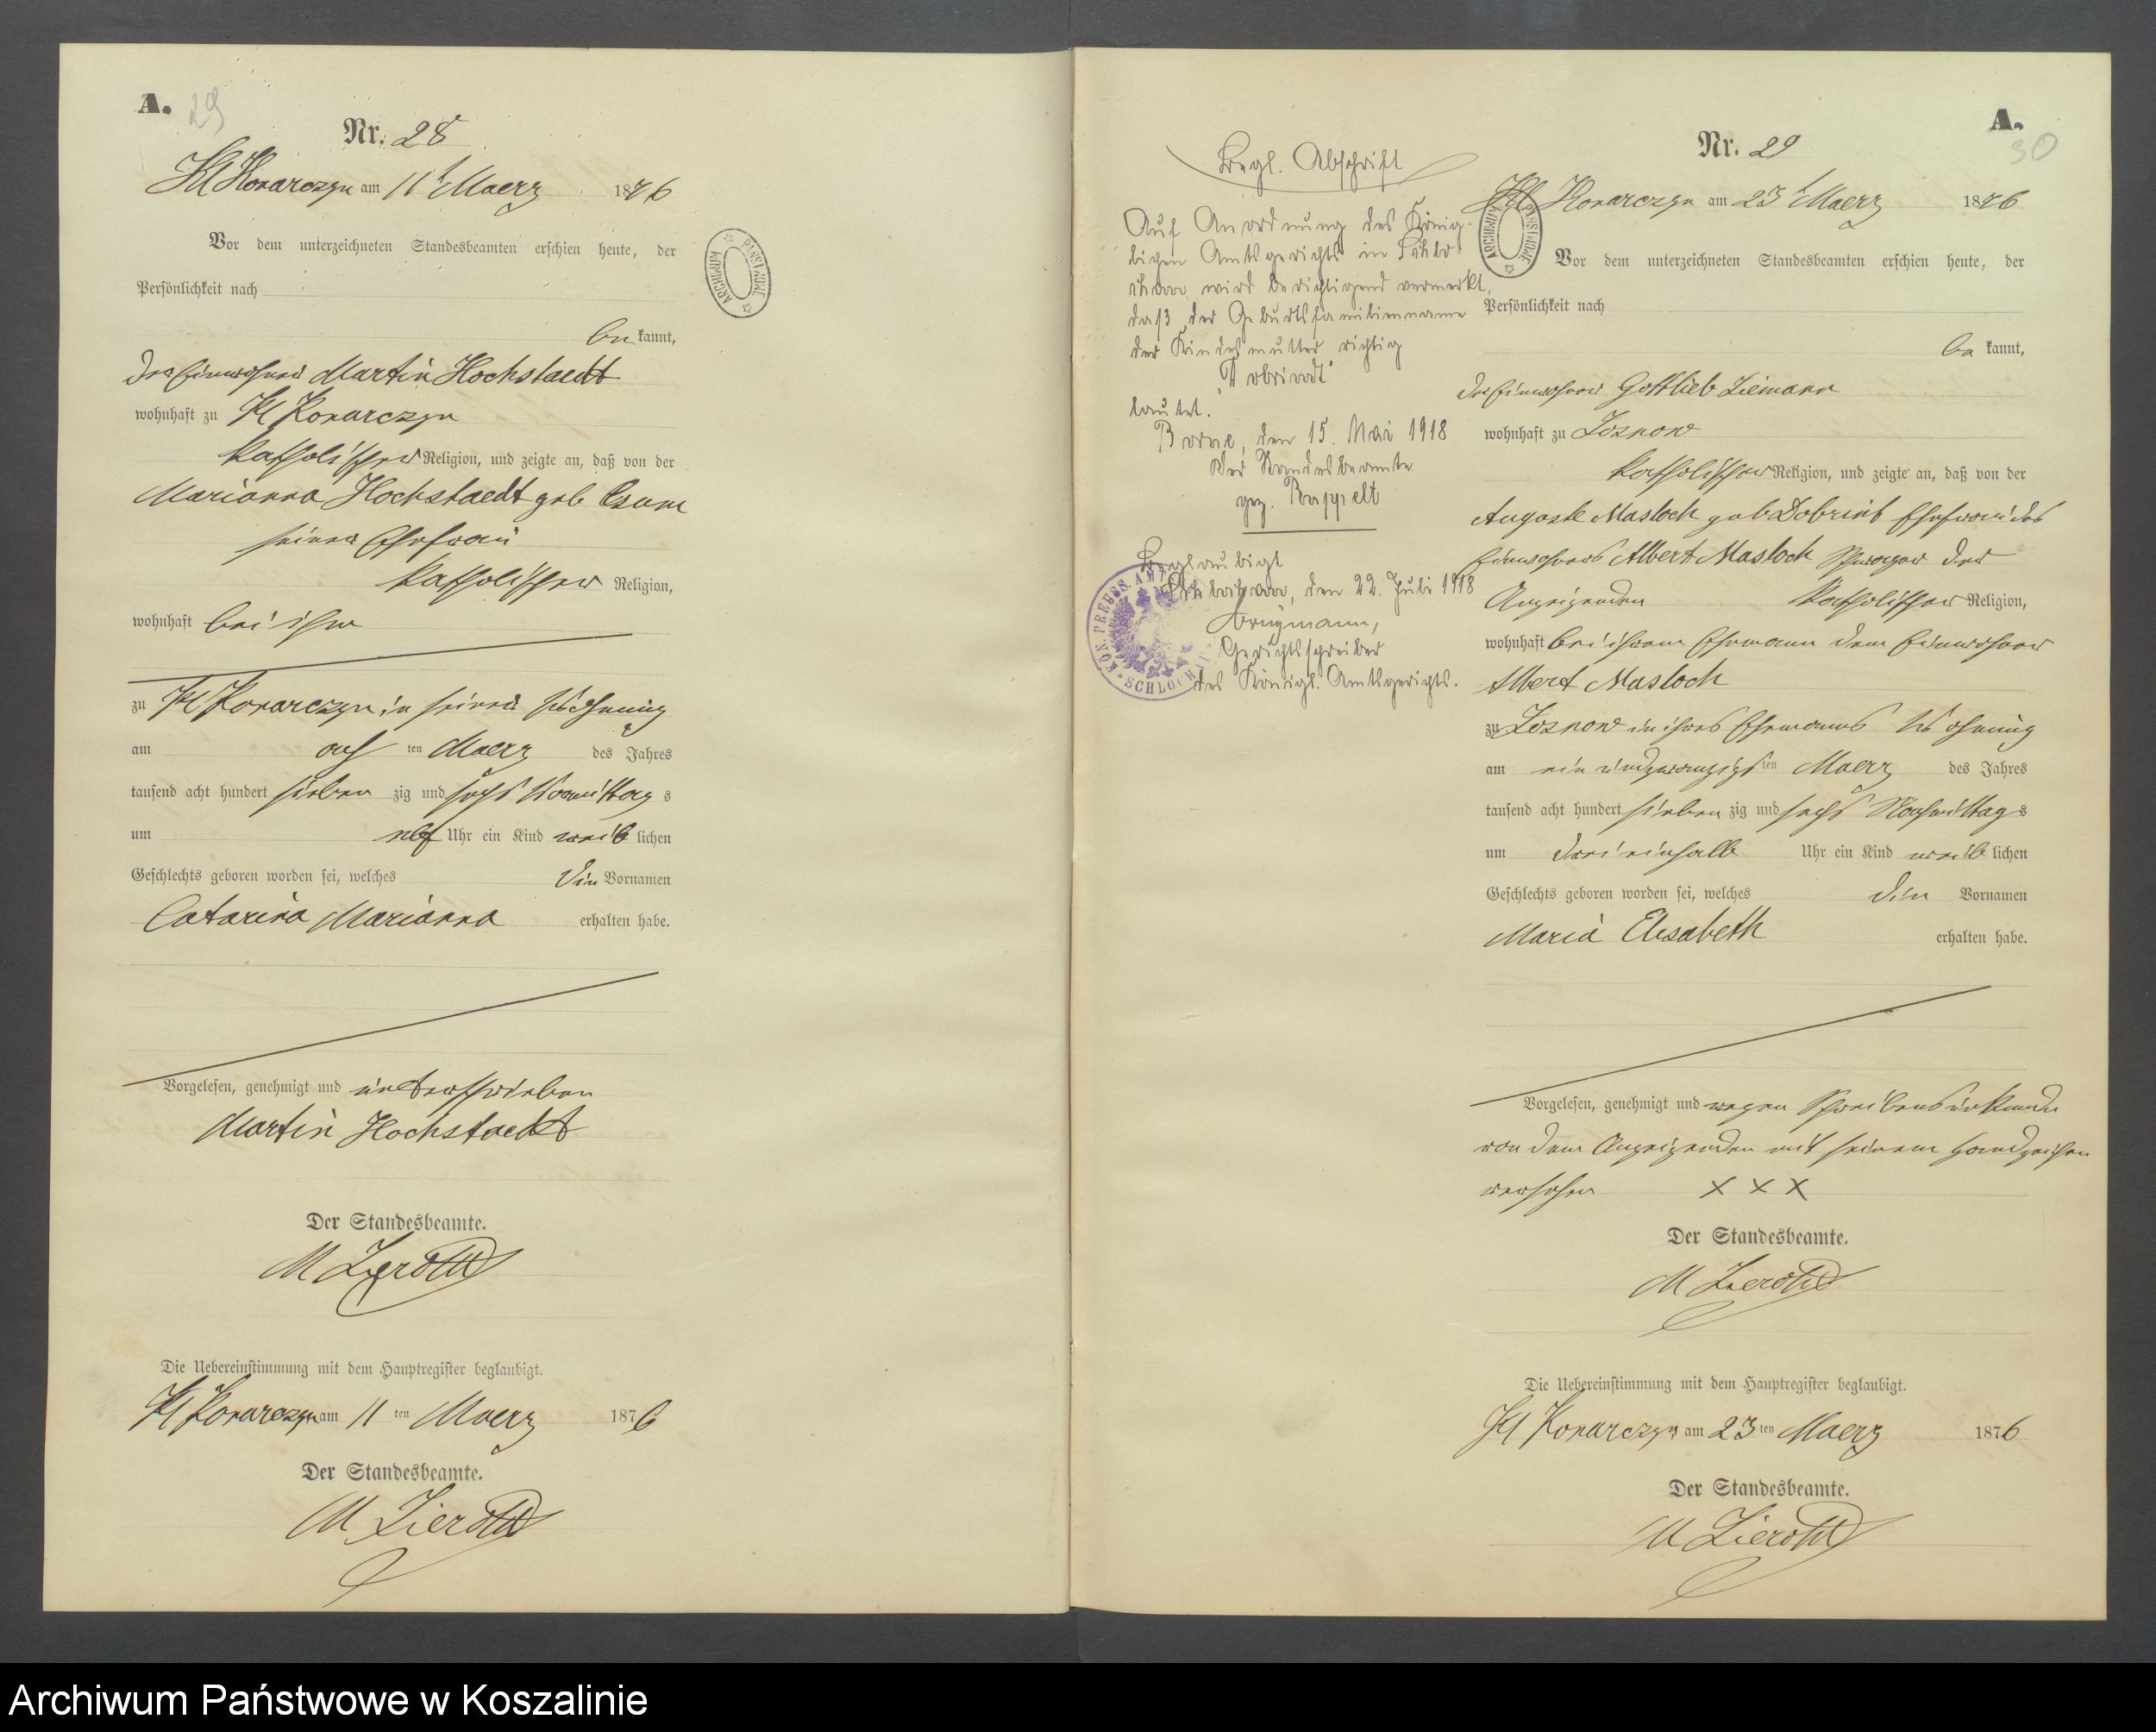 A. 29
Nr. 28
Kl Konarczyn am 11t Maerz 1876
Vor dem unterzeichneten Standesbeamten erschien heute, der
Persönlichkeit nach
be kannt,
der Einwohner Martin Hochstaedt
wohnhaft zu Kl Konarczyn
katholischer Religion, und zeigte an, daß von der
Marianna Hochstaedt geb
seiner Ehefrau
katholischer Religion,
wohnhaft bei ihm
zu Kl Konarczyn in seiner Wohnung
am ten Maerz des Jahres
tausend acht hundert sieben zig und sechs Vormittag s
um elf Uhr ein Kind weib lichen
Geschlechts geboren worden sei, welches die Vornamen
Catarina Marianna erhalten habe.
Vorgelesen, genehmigt und unterschrieben
Martin Hochstaedt
Der Standesbeamte.
M Zieroth
Die Uebereinstimmung mit dem Hauptregister beglaubigt.
Kl Konarczyn am 11 ten Maerz 1876
Der Standesbeamte.
M Zieroth
Begl. Abschrift
Auf Anordnung des König-
lichen Amtsgerichts in Schlo-
chau wird berichtigend vermerkt,
daß der Geburtsfamilienname
der Kindesmutter richtig
lautet.
Borne, den 15. Mai 1918
Der Standesbeamte
gez. Rappelt
Beglaubigt
Schlochau, den 22. Juli 1918
Gerichtsschreiber
des Königl. Amtsgerichts.
KÖN. PREUSS. AMT
A.
30
Nr. 29
Kl Konarczyn am 23t Maerz 1876
Vor dem unterzeichneten Standesbeamten erschien heute, der
Persönlichkeit nach
be kannt,
der Einwohner Gottlieb Ziemann
wohnhaft zu Zoznow
katholischer Religion, und zeigte an, daß von der
Auguste Masloch geb Dobrint Ehefrau des
Einwohners Albert Masloch Schwager des
Anzeigenden katholischer Religion,
wohnhaft bei ihrem Ehemann dem Einwohner
Albert Masloch
zu Zoznow in ihres Ehemanns Wohnung
am ein und zwanzigs ten Maerz des Jahres
tausend acht hundert sieben zig und sechs Nachmittag s
um drei einhalb Uhr ein Kind weib lichen
Geschlechts geboren worden sei, welches die Vornamen
Maria Elisabeth erhalten habe.
Vorgelesen, genehmigt und wegen Schreibensunkunde
von dem Anzeigenden mit seinem Handzeichen
versehen X X X
Der Standesbeamte.
M Zieroth
Die Uebereinstimmung mit dem Hauptregister beglaubigt.
Kl Konarczyn am 23 ten Maerz 1876
Der Standesbeamte.
M Zieroth
ARCHIWUM PAŃSTWOWE
Archiwum Państwowe w Koszalinie